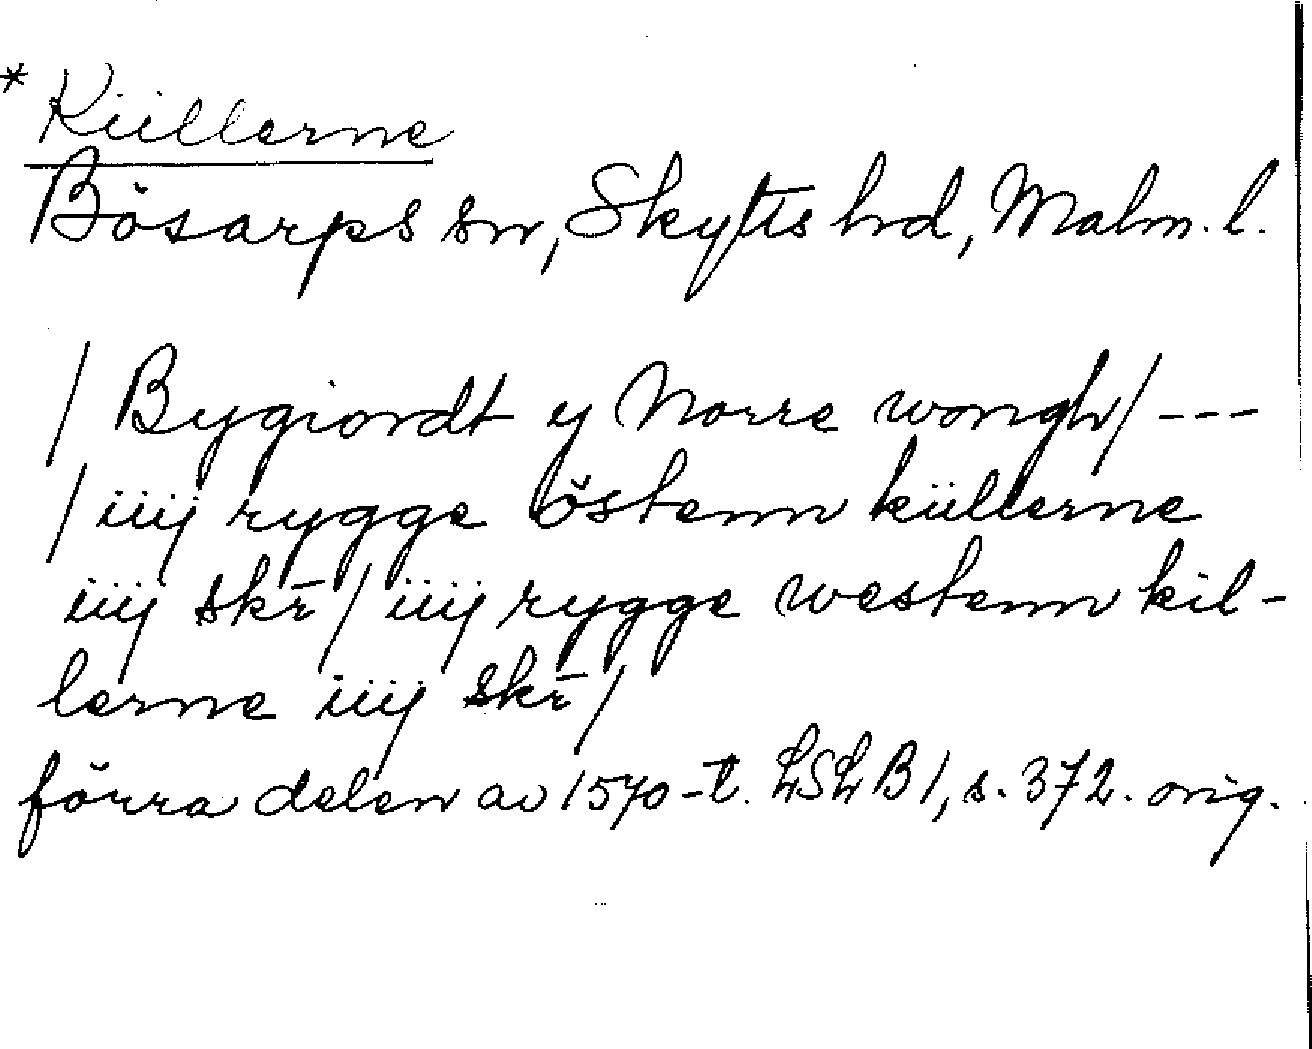 * Küllerne
Bösarps sn, Skytts hrd, Malm. l.
/ Bygiordt y Norre wongh / ---
/ iiij rygge östenn küllerne
iiij skr̄ / iiij rygge westenn kil-
lerne iiij skr̄ /
förra delen av 1570-t. LSLB 1, s. 372. orig.